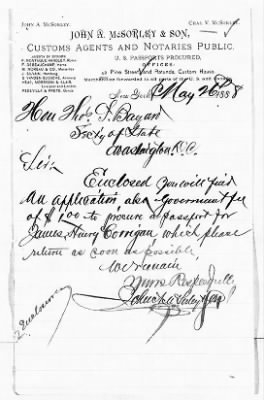 JOHN A. McSORLEY.
CHAS. V. McSORLEY.
JOHN A. McSORLEY & SON,
CUSTOMS AGENTS AND NOTARIES PUBLIC.
U. S. PASSPORTS PROCURED,
OFFICES:
Pine Street and Rotunda, Custom House
Merchandise forwarded to all parts of the U.S.
New York, May 26 1888
Hon Thos F. Bayard
Secty of State
Washington D.C.
Sir
Enclosed you will find
an application, also Government fee
of $1.00 to procure a passport for
James Henry Corrigan which please
return as soon as possible
We remain
Yours Respectfully
John A McSorley & Son
2 Enclosures